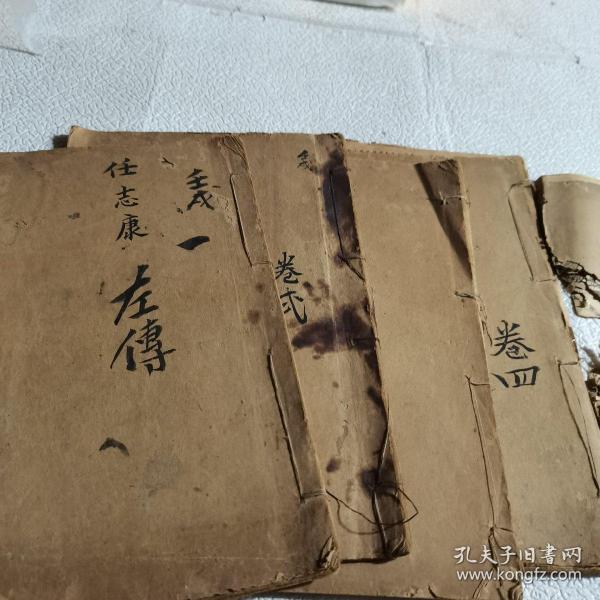 任志康
左傳
一
卷弍
卷四
孔夫子旧書网
www.kongfz.com